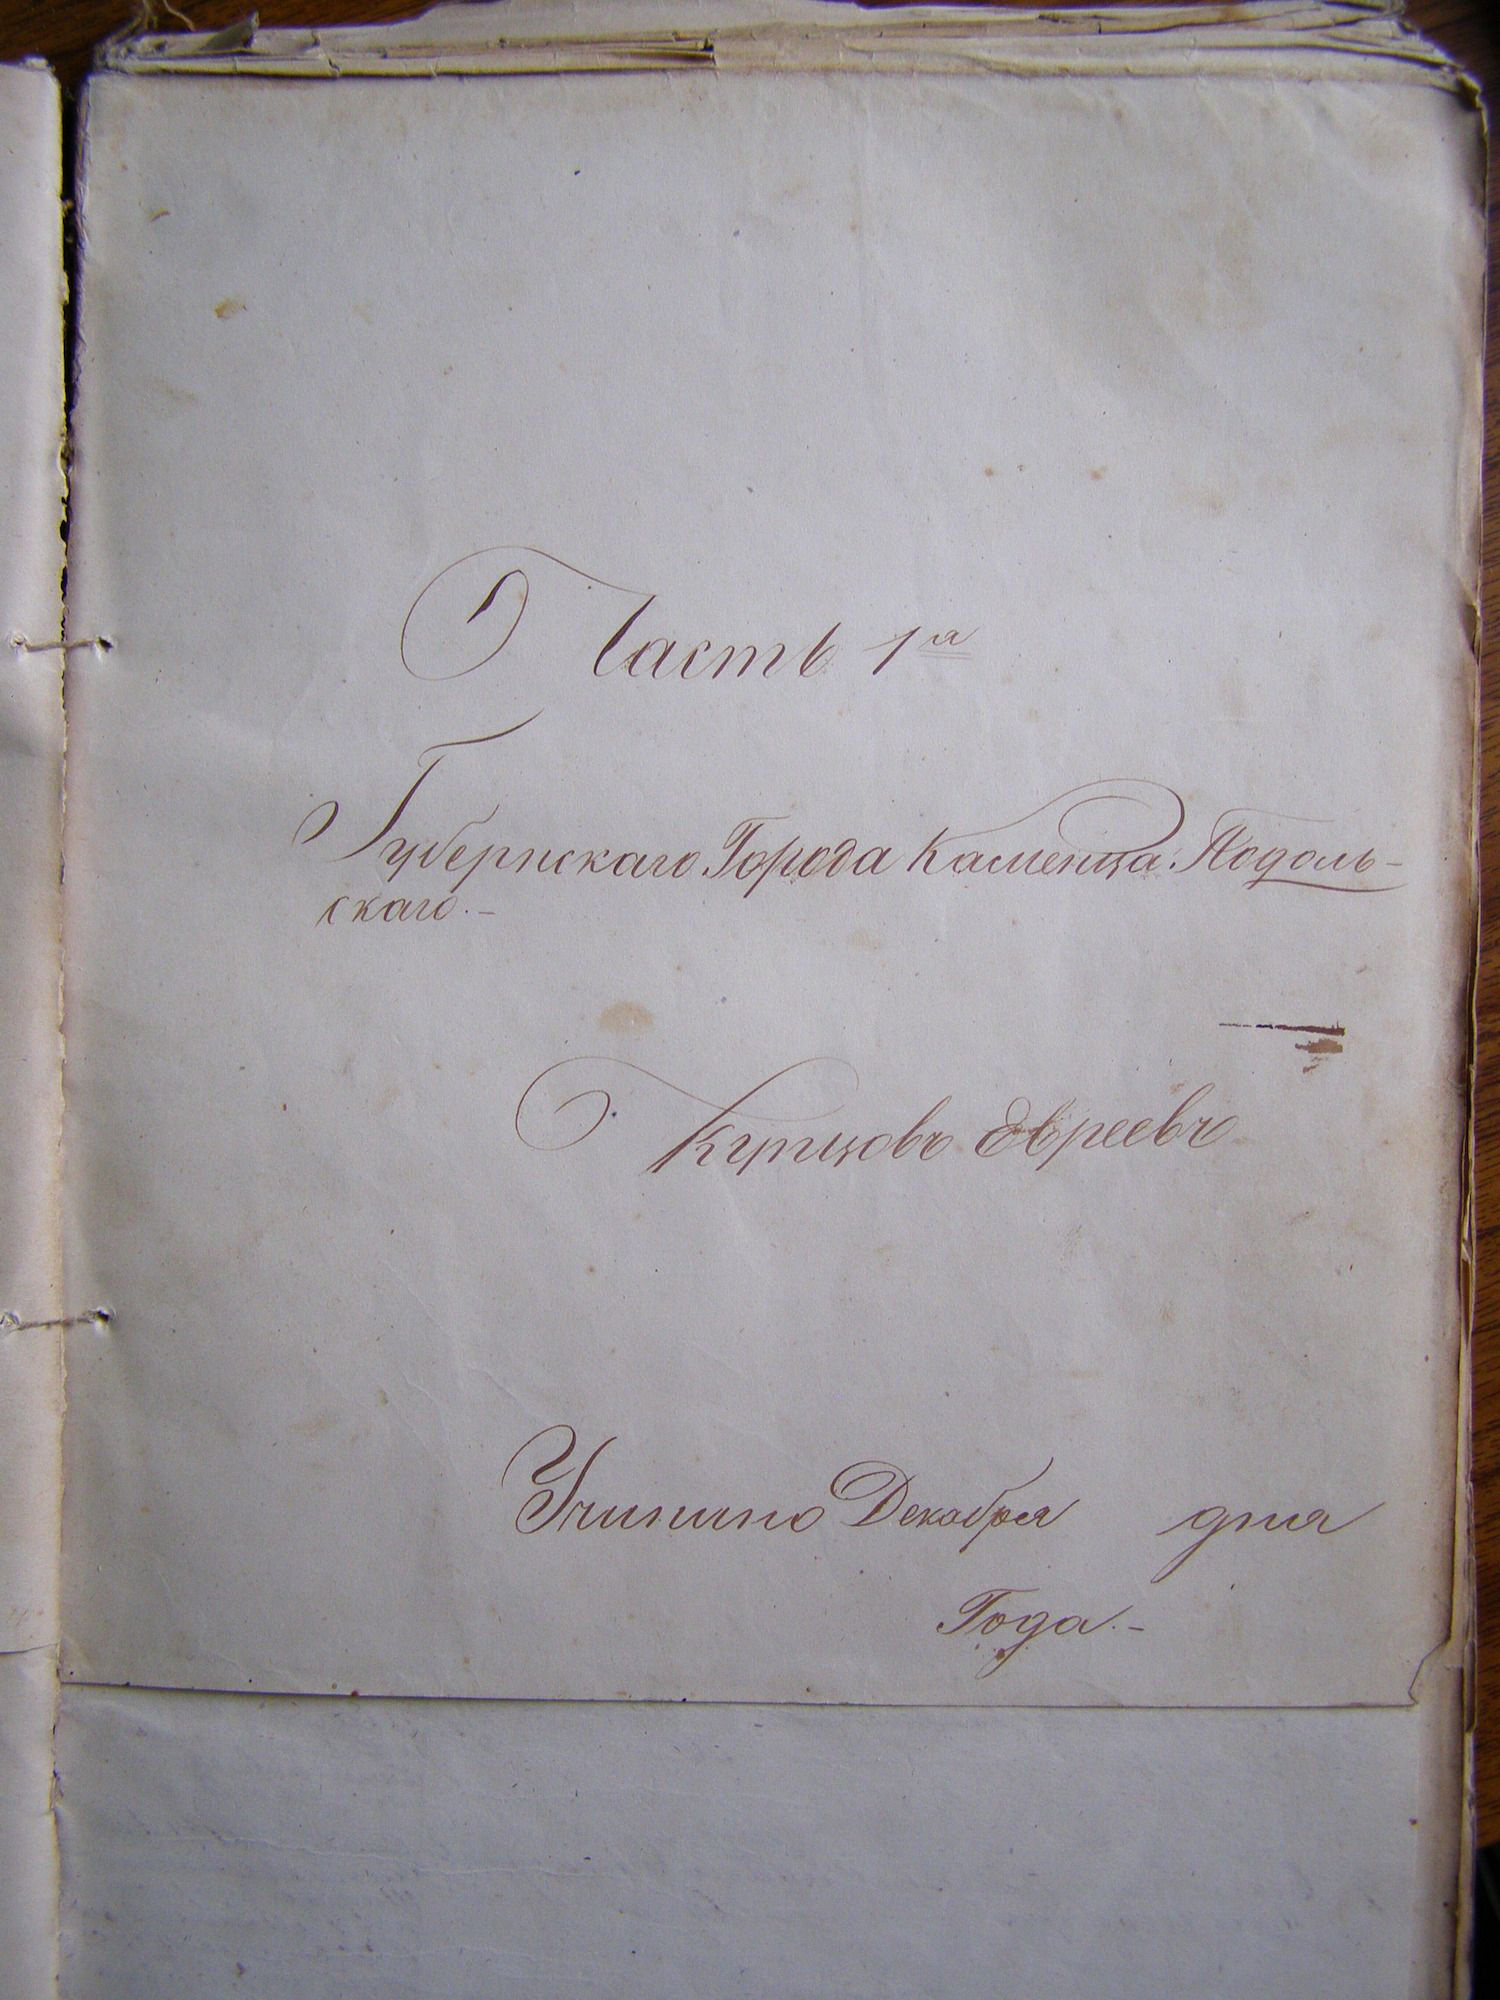 Часть 1ª
Губернскаго Города Каменца Подоль-
скаго.-
Купцовъ Евреевъ
Учинино Декабря дня
Года.-